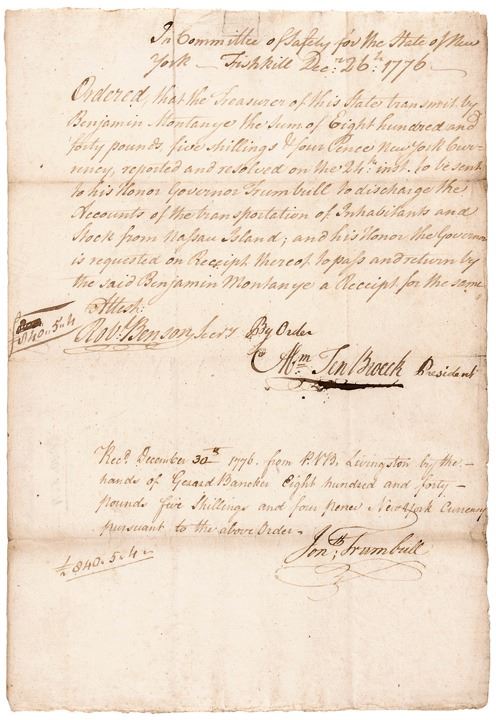 In Committee of Safety for the State of New
York — Fishkill Decr. 26th. 1776 —
Ordered, that the Treasurer of this State transmit by
Benjamin Montanye the Sum of Eight hundred and
forty pounds five shillings & four Pence New York Cur-
rency, reported and resolved on the 24th inst. to be sent
to his Honor Governor Trumbull to discharge the
Accounts of the transportation of Inhabitants and
Stock from Nassau Island; and his Honor the Governor
is requested on Receipt thereof to pass and return by
the said Benjamin Montanye a Receipt for the same
Attest.
£840.5.4
Robt. Benson, Secry By Order
Abm Ten Broeck President
Recd. December 30th 1776 from P.V.B. Livingston by the
hands of Gerard Bancker Eight hundred and forty-
pounds five Shillings and four pence New York Currency
pursuant to the above Order.
£840.5.4
Jonth; Trumbull